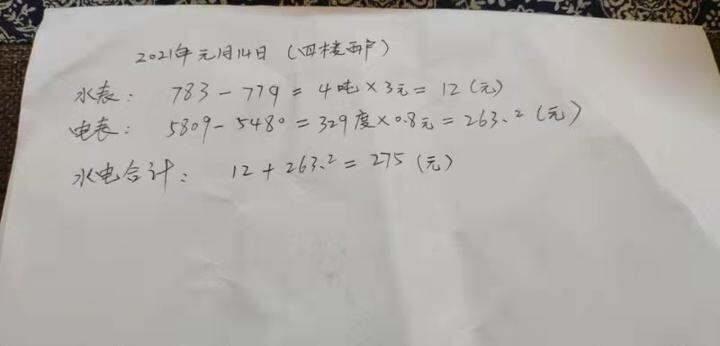 2021年元月14日 (四楼西户)
水表: 783 - 779 = 4吨×3元 = 12(元)
电表: 5809 - 5480 = 329度×0.8元 = 263.2(元)
水电合计: 12 + 263.2 = 275(元)